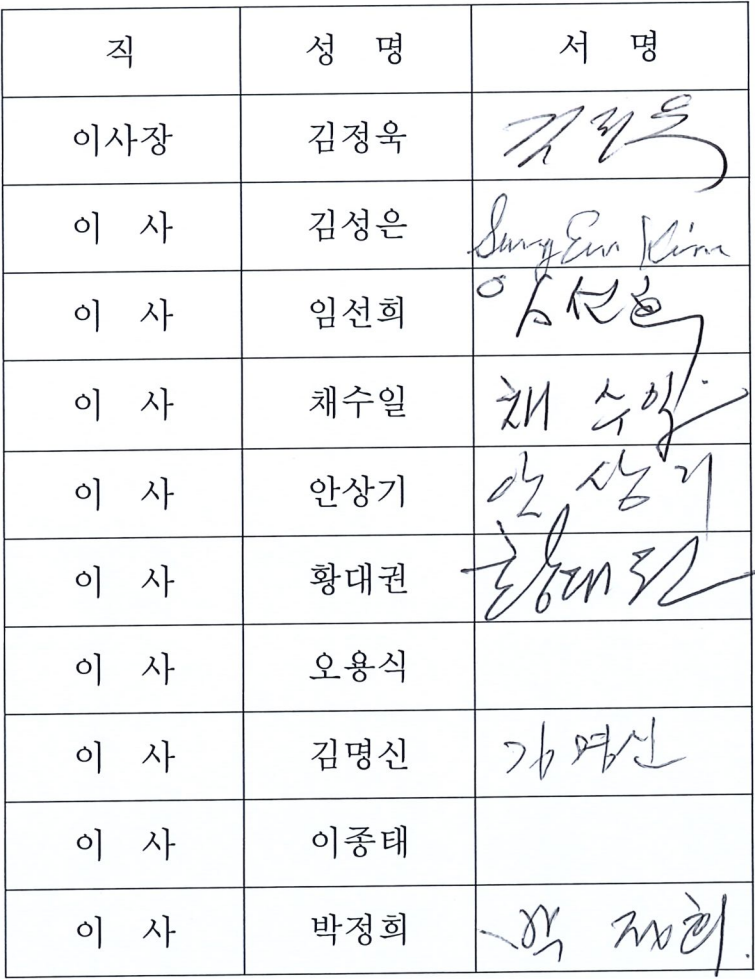 직 성 명 서 명
이사장 김정욱 김정욱
이 사 김성은 Sung Eun Kim
이 사 임선희 임선희
이 사 채수일 채수일
이 사 안상기 안상기
이 사 황대권 황대권
이 사 오용식
이 사 김명신 김명신
이 사 이종태
이 사 박정희 박정희